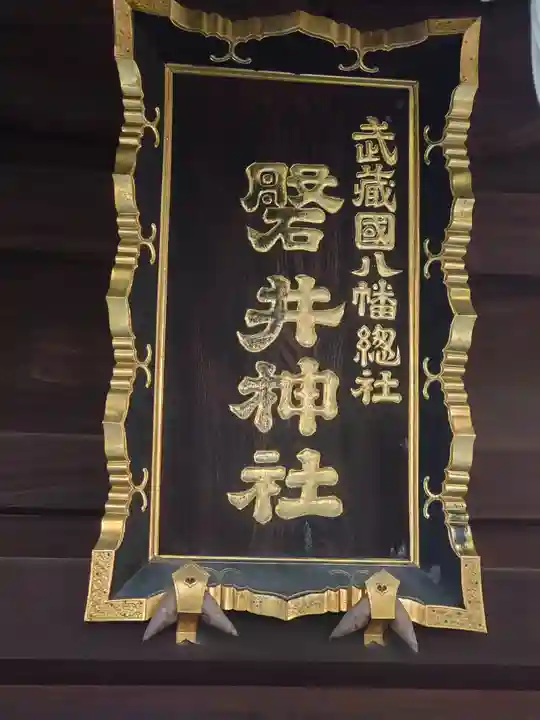 武蔵國八幡総社
磐井神社